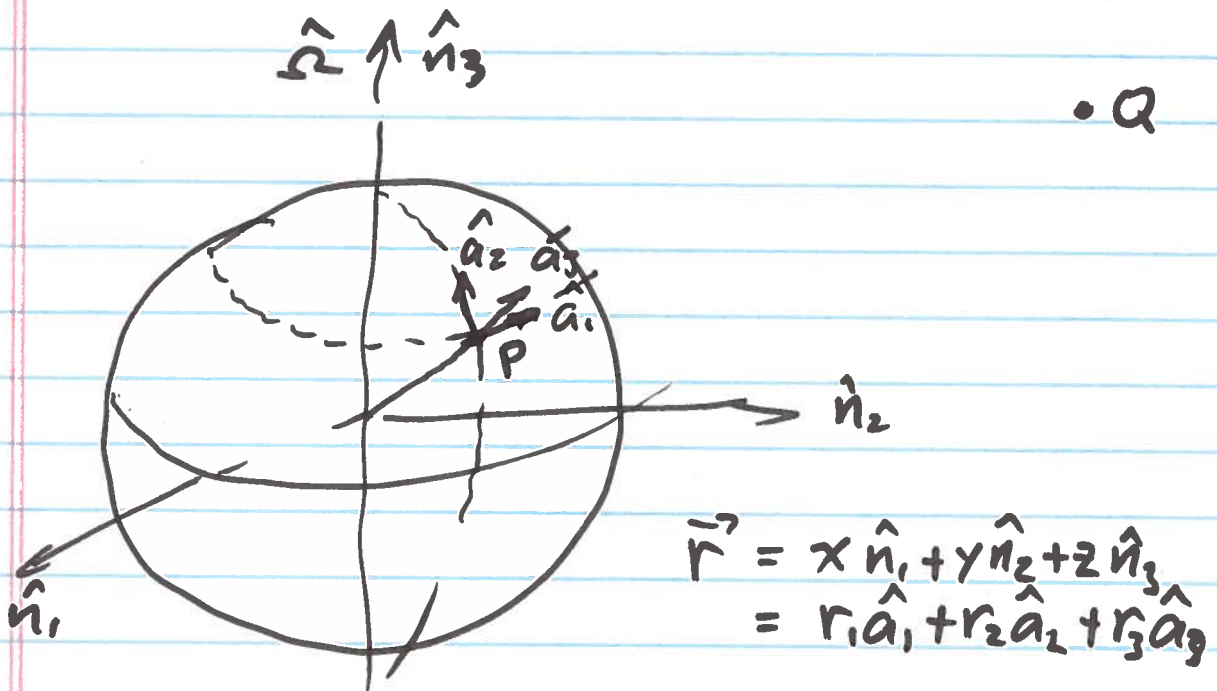 Ω̂ n̂₃
• Q
â₂ â₃
â₁
P
n̂₂
n̂₁
r⃗ = x n̂₁ + y n̂₂ + z n̂₃
= r₁ â₁ + r₂ â₂ + r₃ â₃